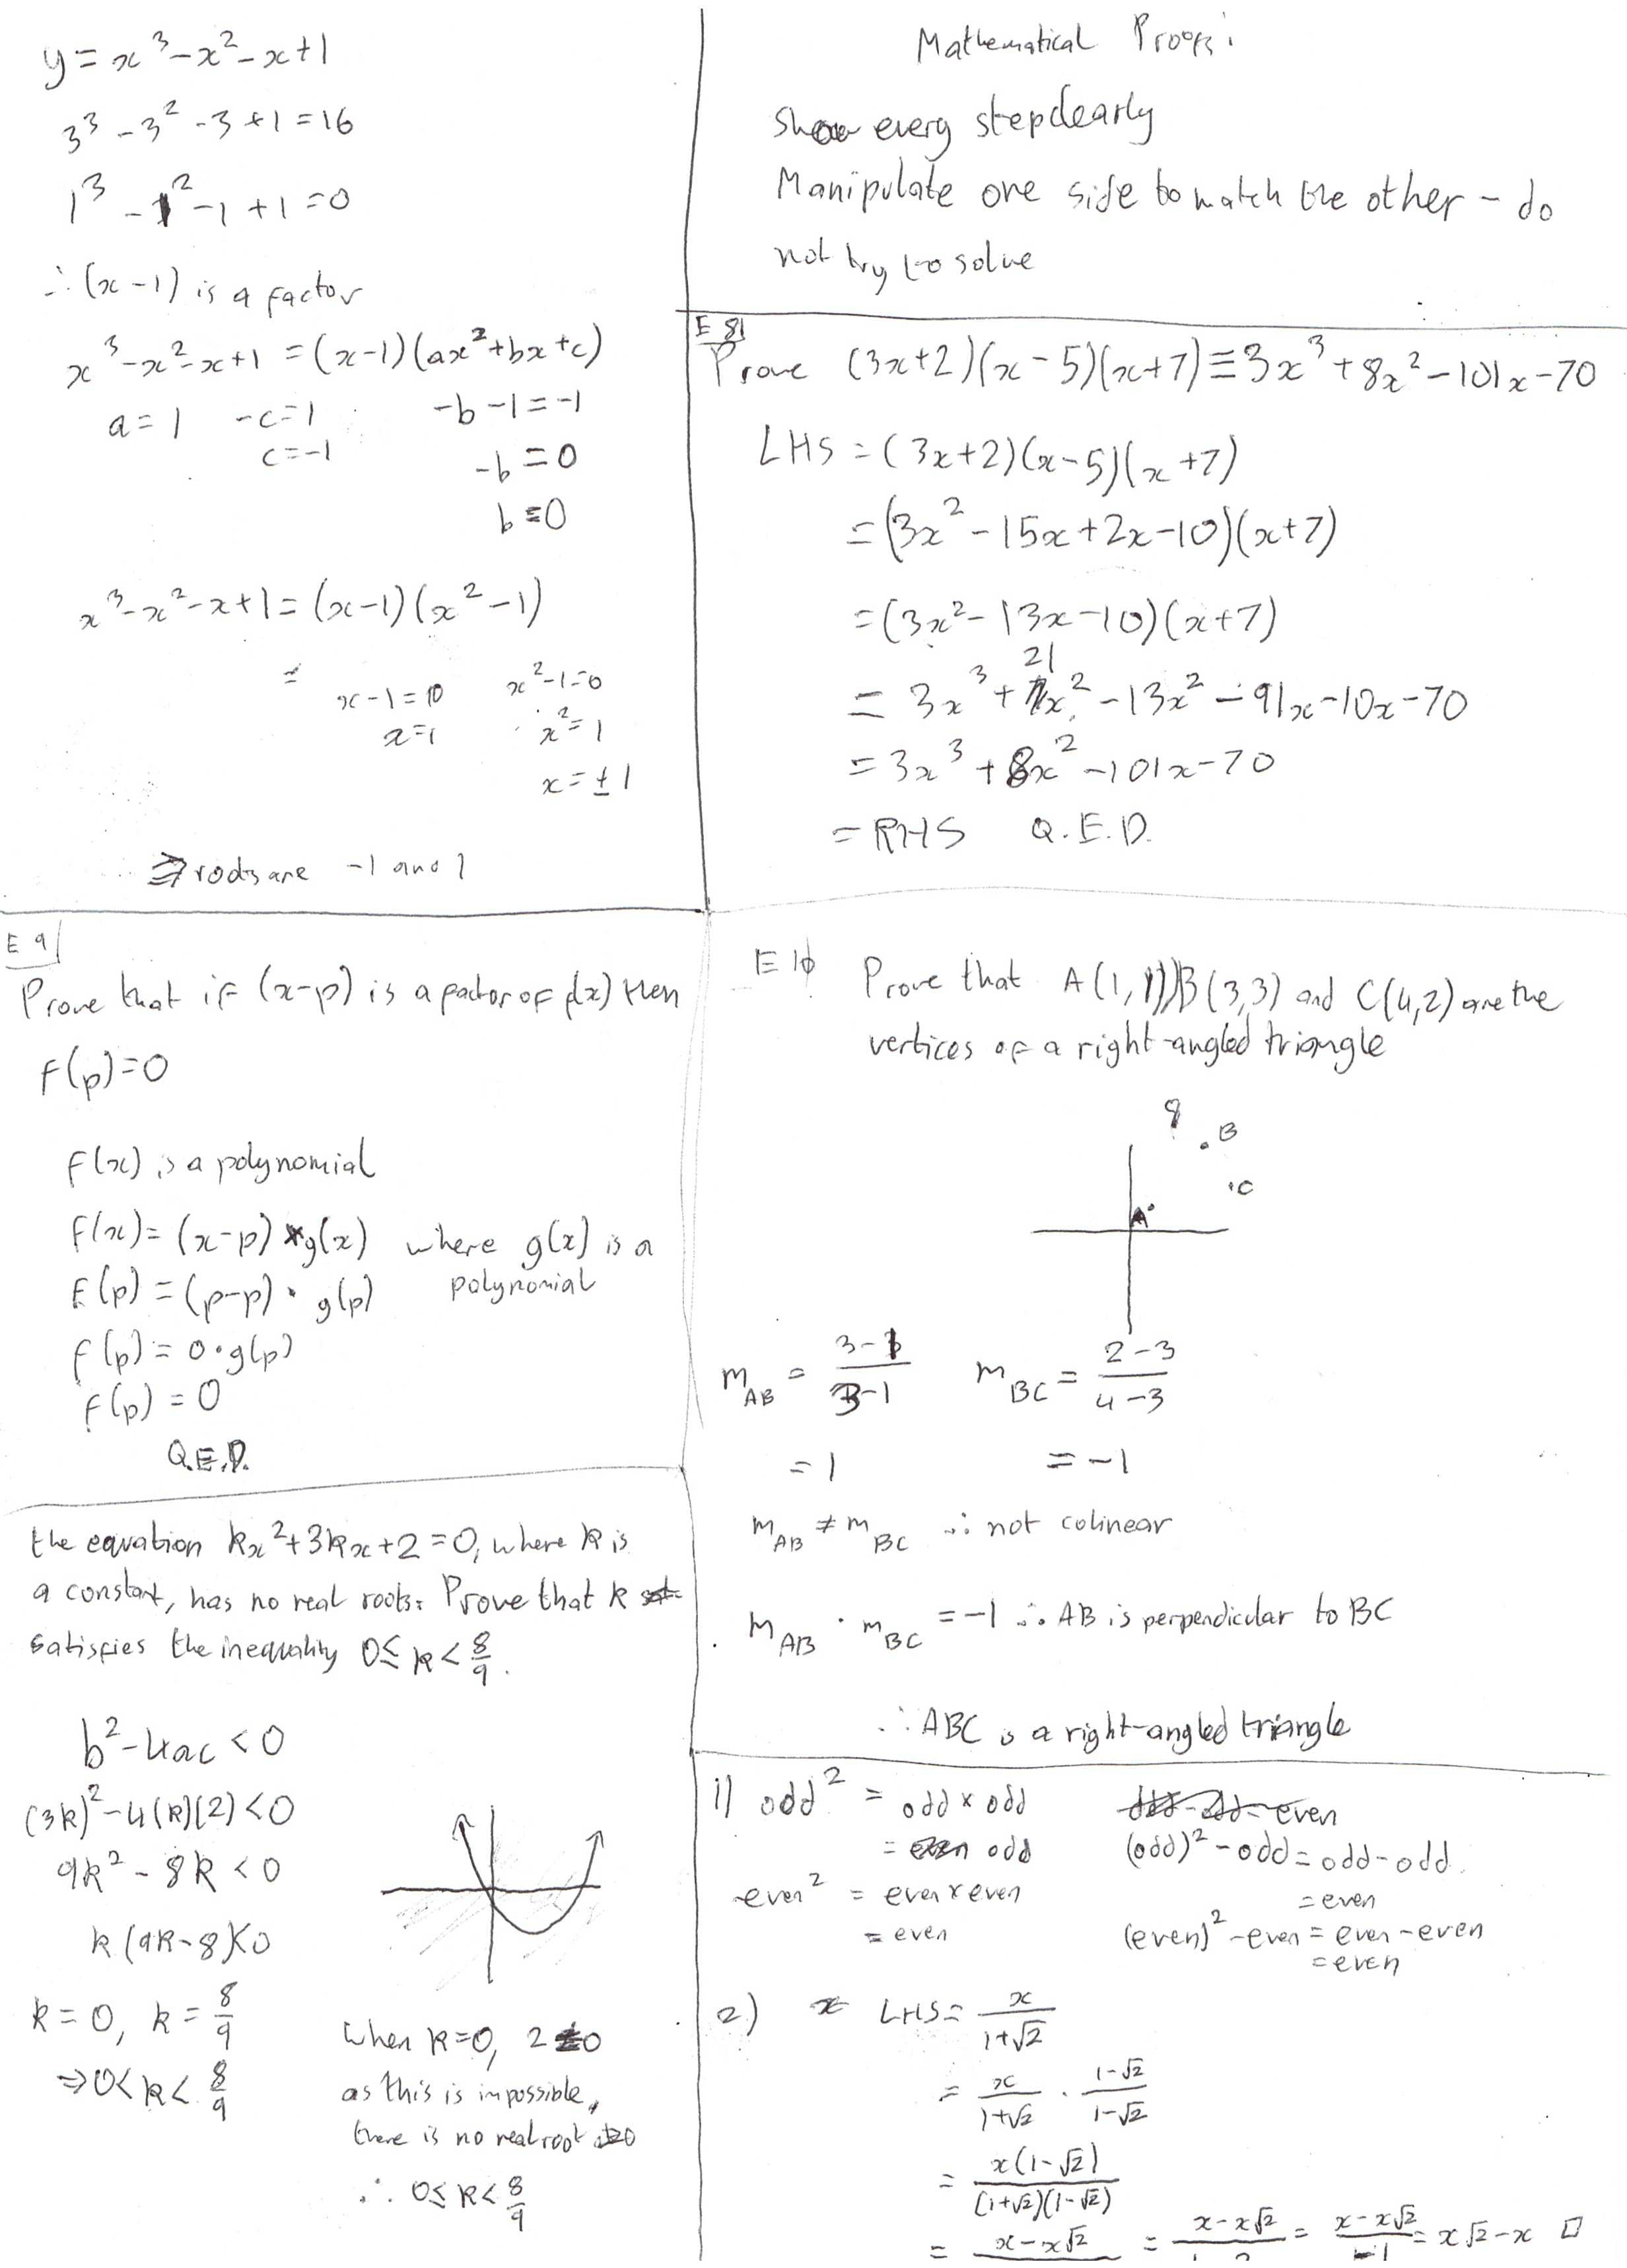 y = x³ - x² - x + 1
3³ - 3² - 3 + 1 = 16
1³ - 1² - 1 + 1 = 0
∴ (x-1) is a factor
x³ - x² - x + 1 = (x-1)(ax² + bx + c)
a = 1   -c = 1   -b - 1 = -1
c = -1   -b = 0
b = 0
x³ - x² - x + 1 = (x-1)(x² - 1)
=
x - 1 = 0   x² - 1 = 0
x = 1   x² = 1
x = ± 1
⇒ roots are -1 and 1
Mathematical Proofs:
Show every step clearly
Manipulate one side to match the other - do
not try to solve
E 8
Prove (3x+2)(x-5)(x+7) ≡ 3x³ + 8x² - 101x - 70
LHS = (3x+2)(x-5)(x+7)
= (3x² - 15x + 2x - 10)(x+7)
= (3x² - 13x - 10)(x+7)
= 3x³ + 21x² - 13x² - 91x - 10x - 70
= 3x³ + 8x² - 101x - 70
= RHS   Q.E.D.
E 9
Prove that if (x-p) is a factor of f(x) then
f(p) = 0
f(x) is a polynomial
f(x) = (x-p) * g(x) where g(x) is a
polynomial
f(p) = (p-p) · g(p)
f(p) = 0 · g(p)
f(p) = 0
Q.E.D.
E 10
Prove that A(1,1), B(3,3) and C(4,2) are the
vertices of a right-angled triangle
B
C
A
m_AB = (3-1)/(3-1)   m_BC = (2-3)/(4-3)
= 1   = -1
m_AB ≠ m_BC ∴ not colinear
m_AB · m_BC = -1 ∴ AB is perpendicular to BC
∴ ABC is a right-angled triangle
the equation kx² + 3kx + 2 = 0, where k is
a constant, has no real roots. Prove that k
satisfies the inequality 0 ≤ k < 8/9.
b² - 4ac < 0
(3k)² - 4(k)(2) < 0
9k² - 8k < 0
k(9k-8) < 0
k = 0, k = 8/9
⇒ 0 < k < 8/9
When k = 0, 2 ≠ 0
as this is impossible,
there is no real root
∴ 0 ≤ k < 8/9
1) odd² = odd × odd
= odd
even² = even × even
= even
odd - odd = even
(odd)² - odd = odd - odd
= even
(even)² - even = even - even
= even
2) LHS = x/(1+√2)
= x/(1+√2) · (1-√2)/(1-√2)
= x(1-√2)/((1+√2)(1-√2))
= x - x√2 = x - x√2 = (x - x√2)/-1 = x√2 - x □